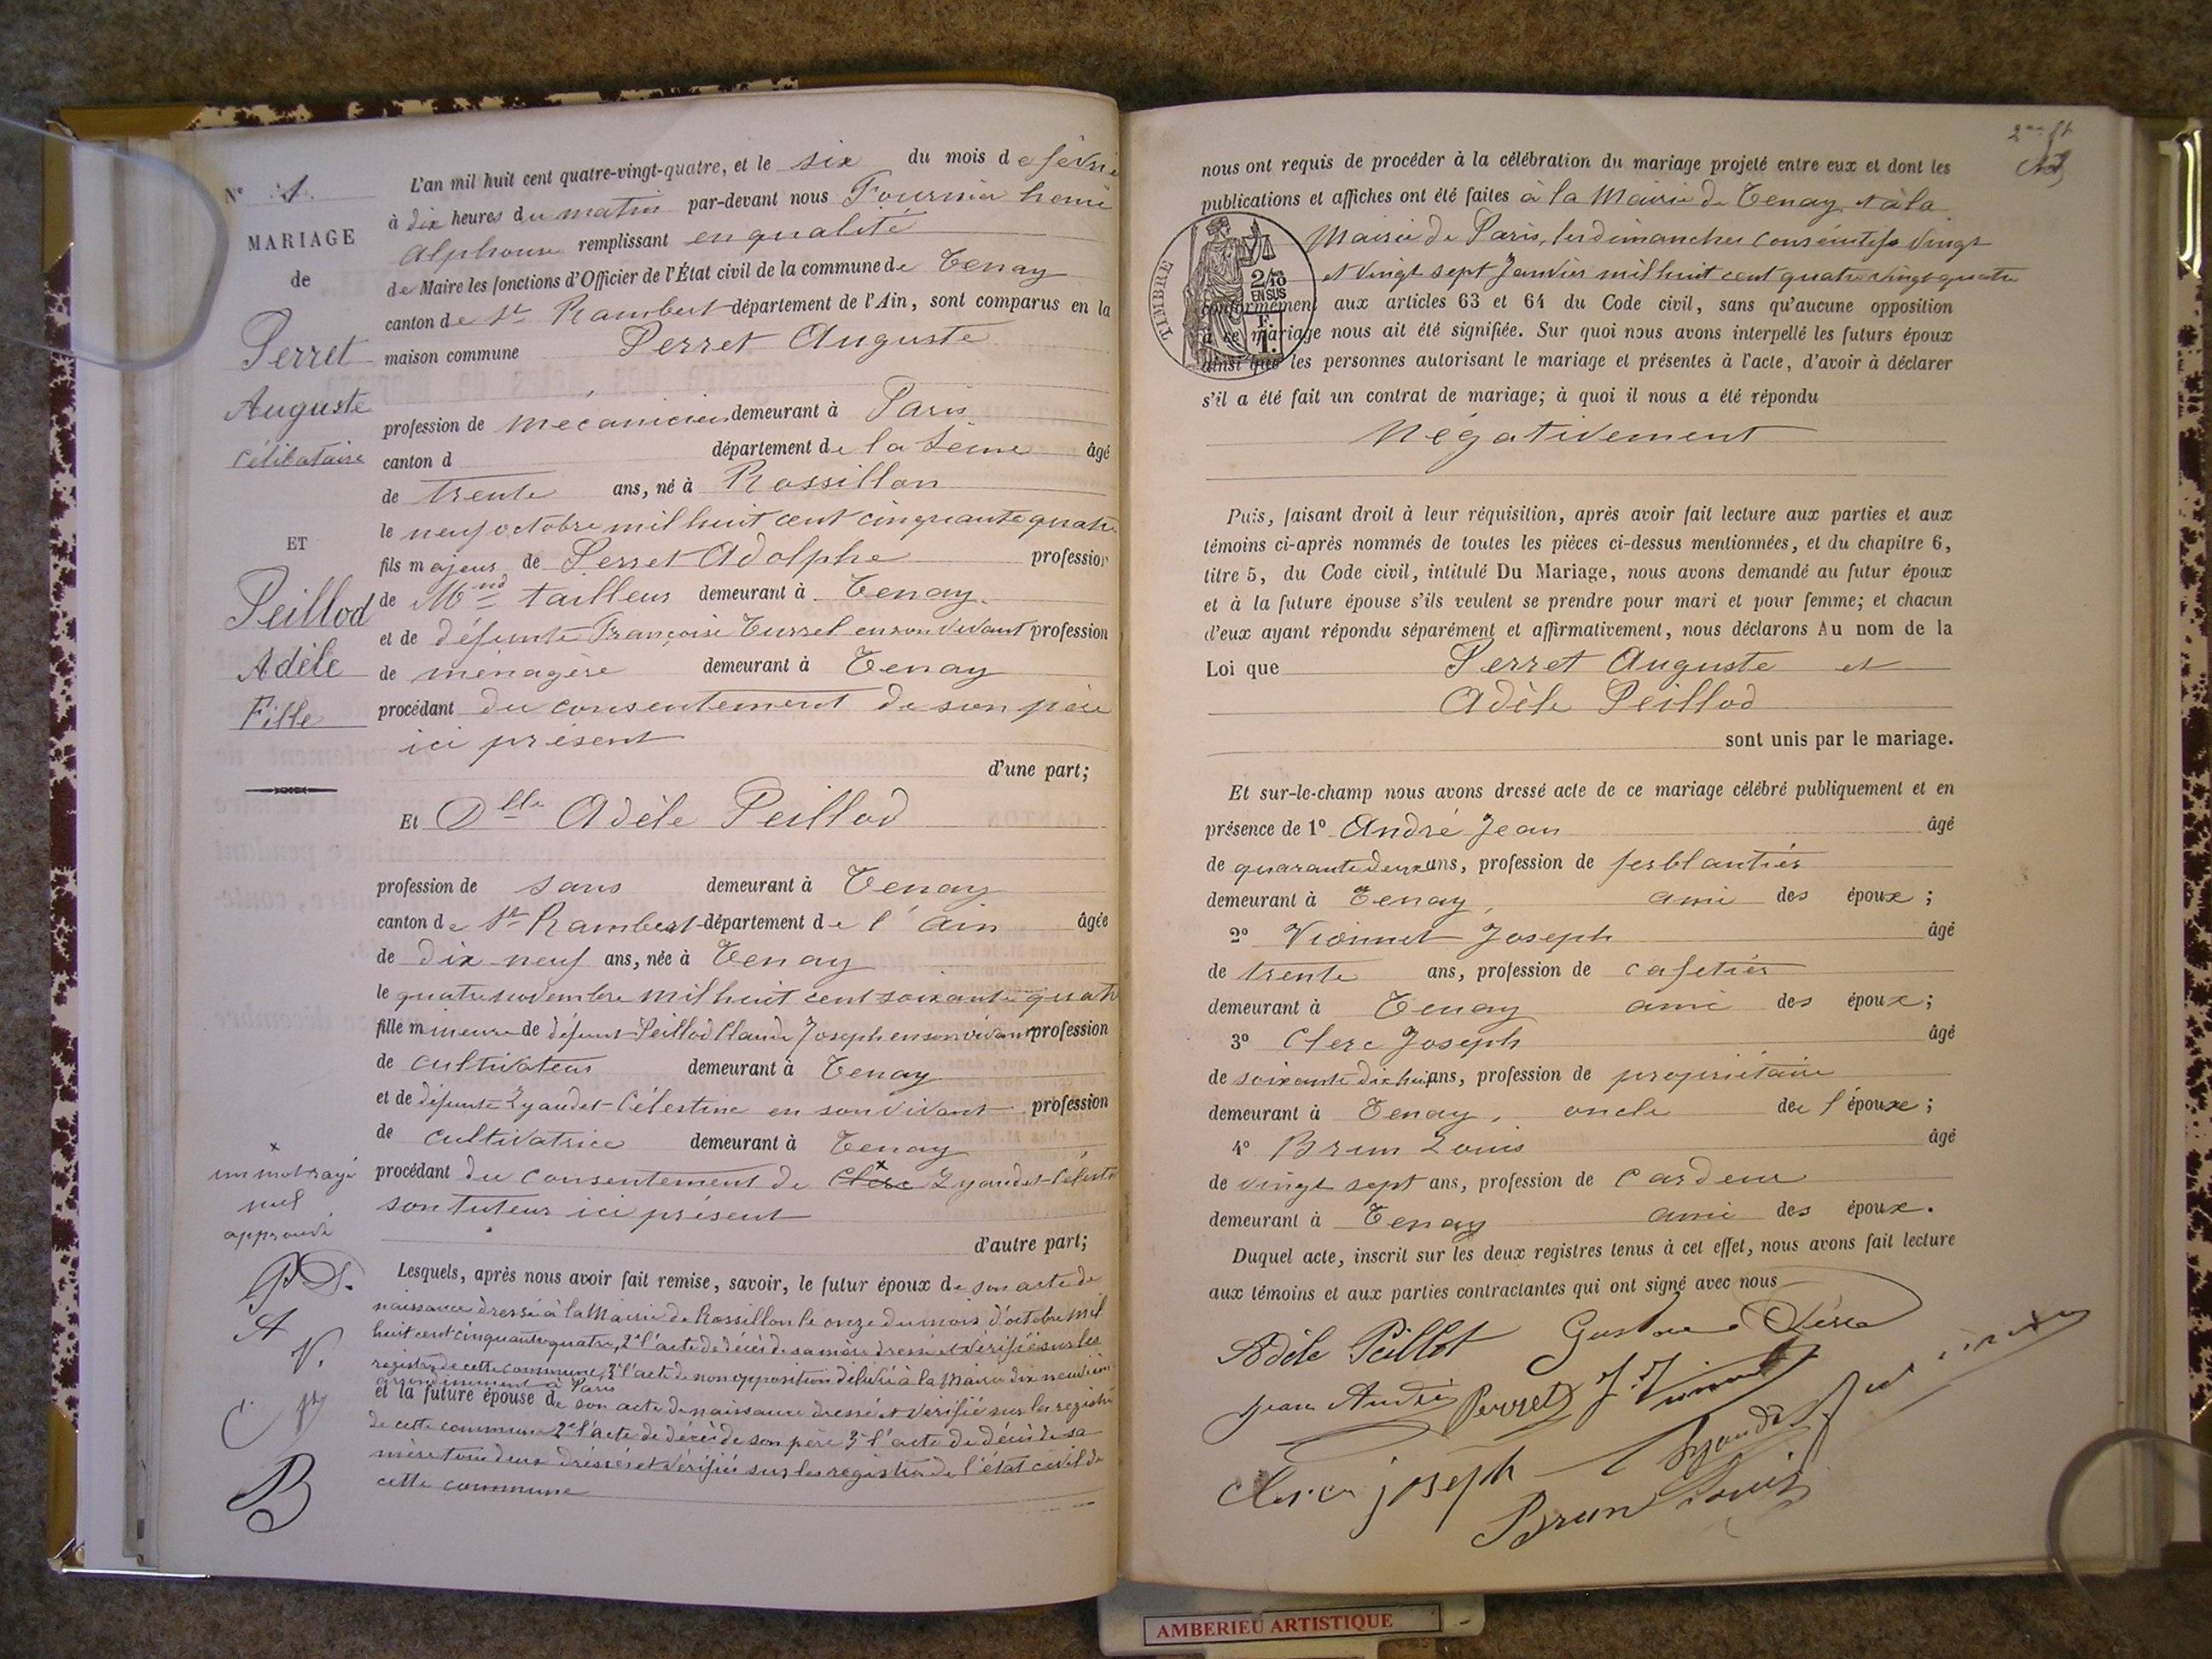 N° 1
MARIAGE
de
Perret
Auguste
Célibataire
ET
Peillod
Adèle
Fille
L'an mil huit cent quatre-vingt-quatre, et le six du mois de févri
à dix heures du matin par-devant nous Fournier henri
Alphonse remplissant en qualité
de Maire les fonctions d'Officier de l'État civil de la commune de Tenay
canton de St Rambert département de l'Ain, sont comparus en la
maison commune Perret Auguste
profession de mécanicien demeurant à Paris
canton d département de la Seine âgé
de trente ans, né à Rossillon
le neuf octobre mil huit cent cinquante quatre
fils majeur de Perret Adolphe profession
de Mnd tailleur demeurant à Tenay
et de défunte Françoise Turrel en son vivant profession
de ménagère demeurant à Tenay
procédant du consentement de son père
ici présent
d'une part;
Et Dlle Adèle Peillod
profession de sans demeurant à Tenay
canton de St Rambert département de l'Ain âgée
de dix neuf ans, née à Tenay
le quatre novembre mil huit cent soixante quatr
fille mineure de défunt Peillod Claude Joseph en son vivant profession
de cultivateur demeurant à Tenay
et de défunte Lyaudet Célestine en son vivant profession
de cultivatrice demeurant à Tenay
x
un mot rayé
nul
approuvé
procédant du consentement de Clerc x Lyaudet Célesti
son tuteur ici présent
d'autre part;
Lesquels, après nous avoir fait remise, savoir, le futur époux de son acte de
naissance dressé à la Mairie de Rossillon le onze du mois d'octobre mil
huit cent cinquante quatre, 2° l'acte de décès de sa mère dressé et vérifié sur les
registres de cette commune, 3° l'acte de non opposition délivré à la Mairie dix neuvièm
arrondissement à Paris
et la future épouse de son acte de naissance dressé et vérifié sur les registre
de cette commune 2° l'acte de décès de son père 3° l'acte de décès de sa
mère tous deux dréssés et vérifiés sur les registres de l'état civil de
cette commune
A
V.
B
nous ont requis de procéder à la célébration du mariage projeté entre eux et dont les
publications et affiches ont été faites à la Mairie de Tenay et à la
Mairie de Paris, les dimanches consécutifs vingt
et vingt sept Janvier mil huit cent quatre vingt quatre
TIMBRE
2/10
EN SUS
F.
1.
conformément aux articles 63 et 64 du Code civil, sans qu'aucune opposition
à ce mariage nous ait été signifiée. Sur quoi nous avons interpellé les futurs époux
ainsi que les personnes autorisant le mariage et présentes à l'acte, d'avoir à déclarer
s'il a été fait un contrat de mariage; à quoi il nous a été répondu
Négativement
Puis, faisant droit à leur réquisition, après avoir fait lecture aux parties et aux
témoins ci-après nommés de toutes les pièces ci-dessus mentionnées, et du chapitre 6,
titre 5, du Code civil, intitulé Du Mariage, nous avons demandé au futur époux
et à la future épouse s'ils veulent se prendre pour mari et pour femme; et chacun
d'eux ayant répondu séparément et affirmativement, nous déclarons Au nom de la
Loi que Perret Auguste et
Adèle Peillod
sont unis par le mariage.
Et sur-le-champ nous avons dressé acte de ce mariage célébré publiquement et en
présence de 1° André Jean âgé
de quarante deux ans, profession de ferblantier
demeurant à Tenay, ami des époux;
2° Vionnet Joseph âgé
de trente ans, profession de cafetier
demeurant à Tenay ami des époux;
3° Clerc Joseph âgé
de soixante dix huit ans, profession de propriétaire
demeurant à Tenay, oncle de l'épouse;
4° Brun Louis âgé
de vingt sept ans, profession de Cardeur
demeurant à Tenay ami des époux.
Duquel acte, inscrit sur les deux registres tenus à cet effet, nous avons fait lecture
aux témoins et aux parties contractantes qui ont signé avec nous
Adèle Peillot Gustave
Jean André Perret
joseph
Brun Louis
AMBERIEU ARTISTIQUE